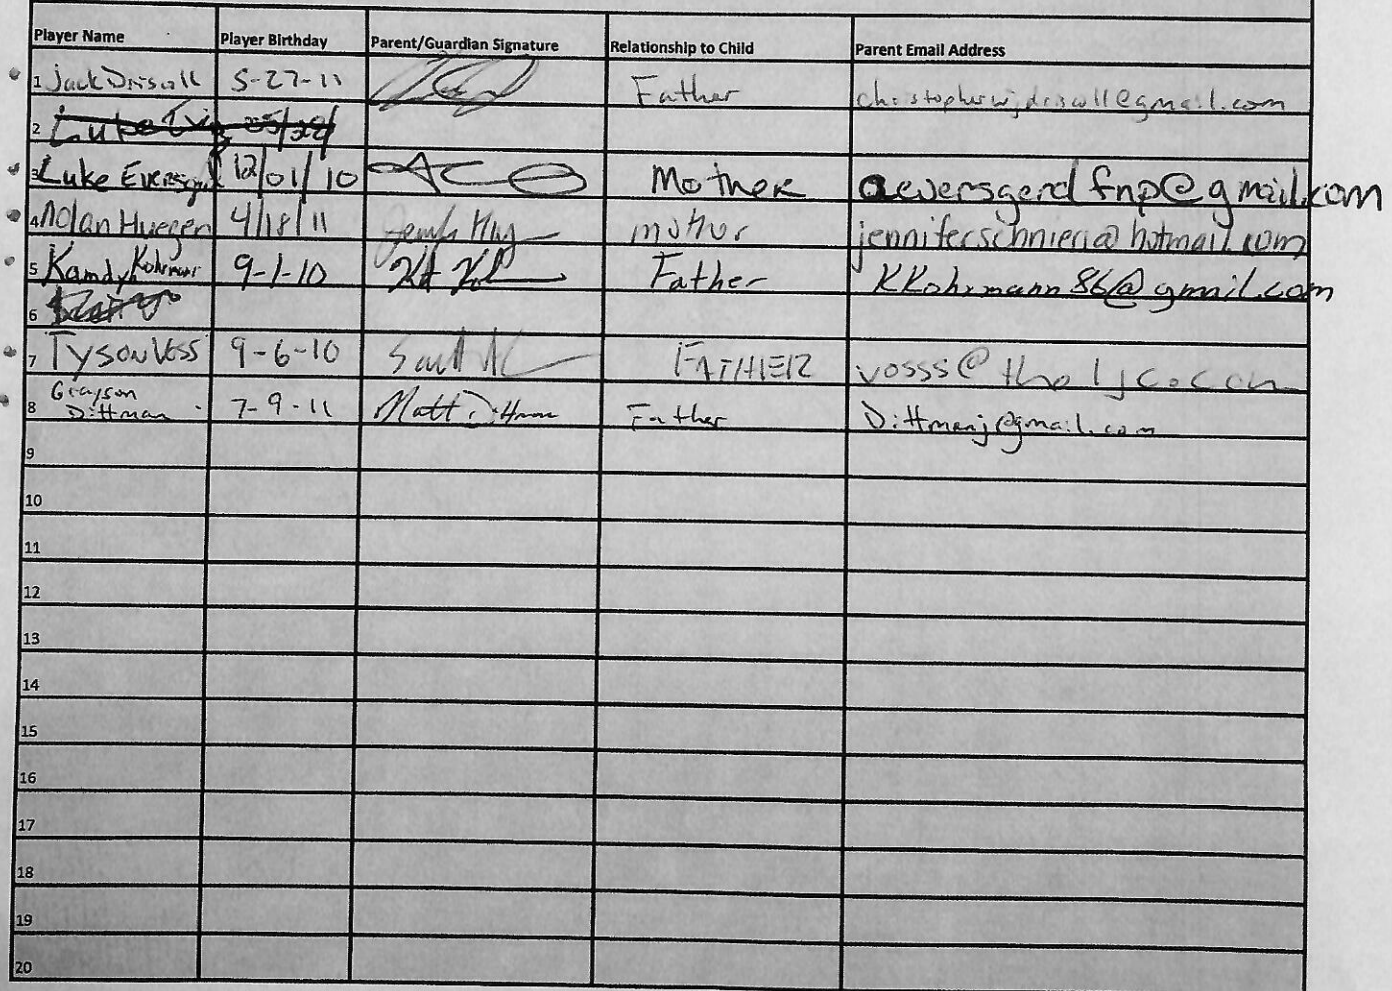 Player Name Player Birthday Parent/Guardian Signature Relationship to Child Parent Email Address
1 Jack Driscoll 5-27-11 Father christopherwjdriscoll@gmail.com
2 Luke
3 Luke Eversgerd 12/01/10 Mother aeversgerdfnp@gmail.com
4 Nolan Huegen 4/18/11 mother jenniferschnieri@hotmail.com
5 Kamdyn Kohrmann 9-1-10 Father KKohrmann86@gmail.com
6
7 Tyson Voss 9-6-10 FATHER vosss@theljc.com
8 Grayson Dittman 7-9-11 Matt Dittman Father Dittmanj@gmail.com
9
10
11
12
13
14
15
16
17
18
19
20